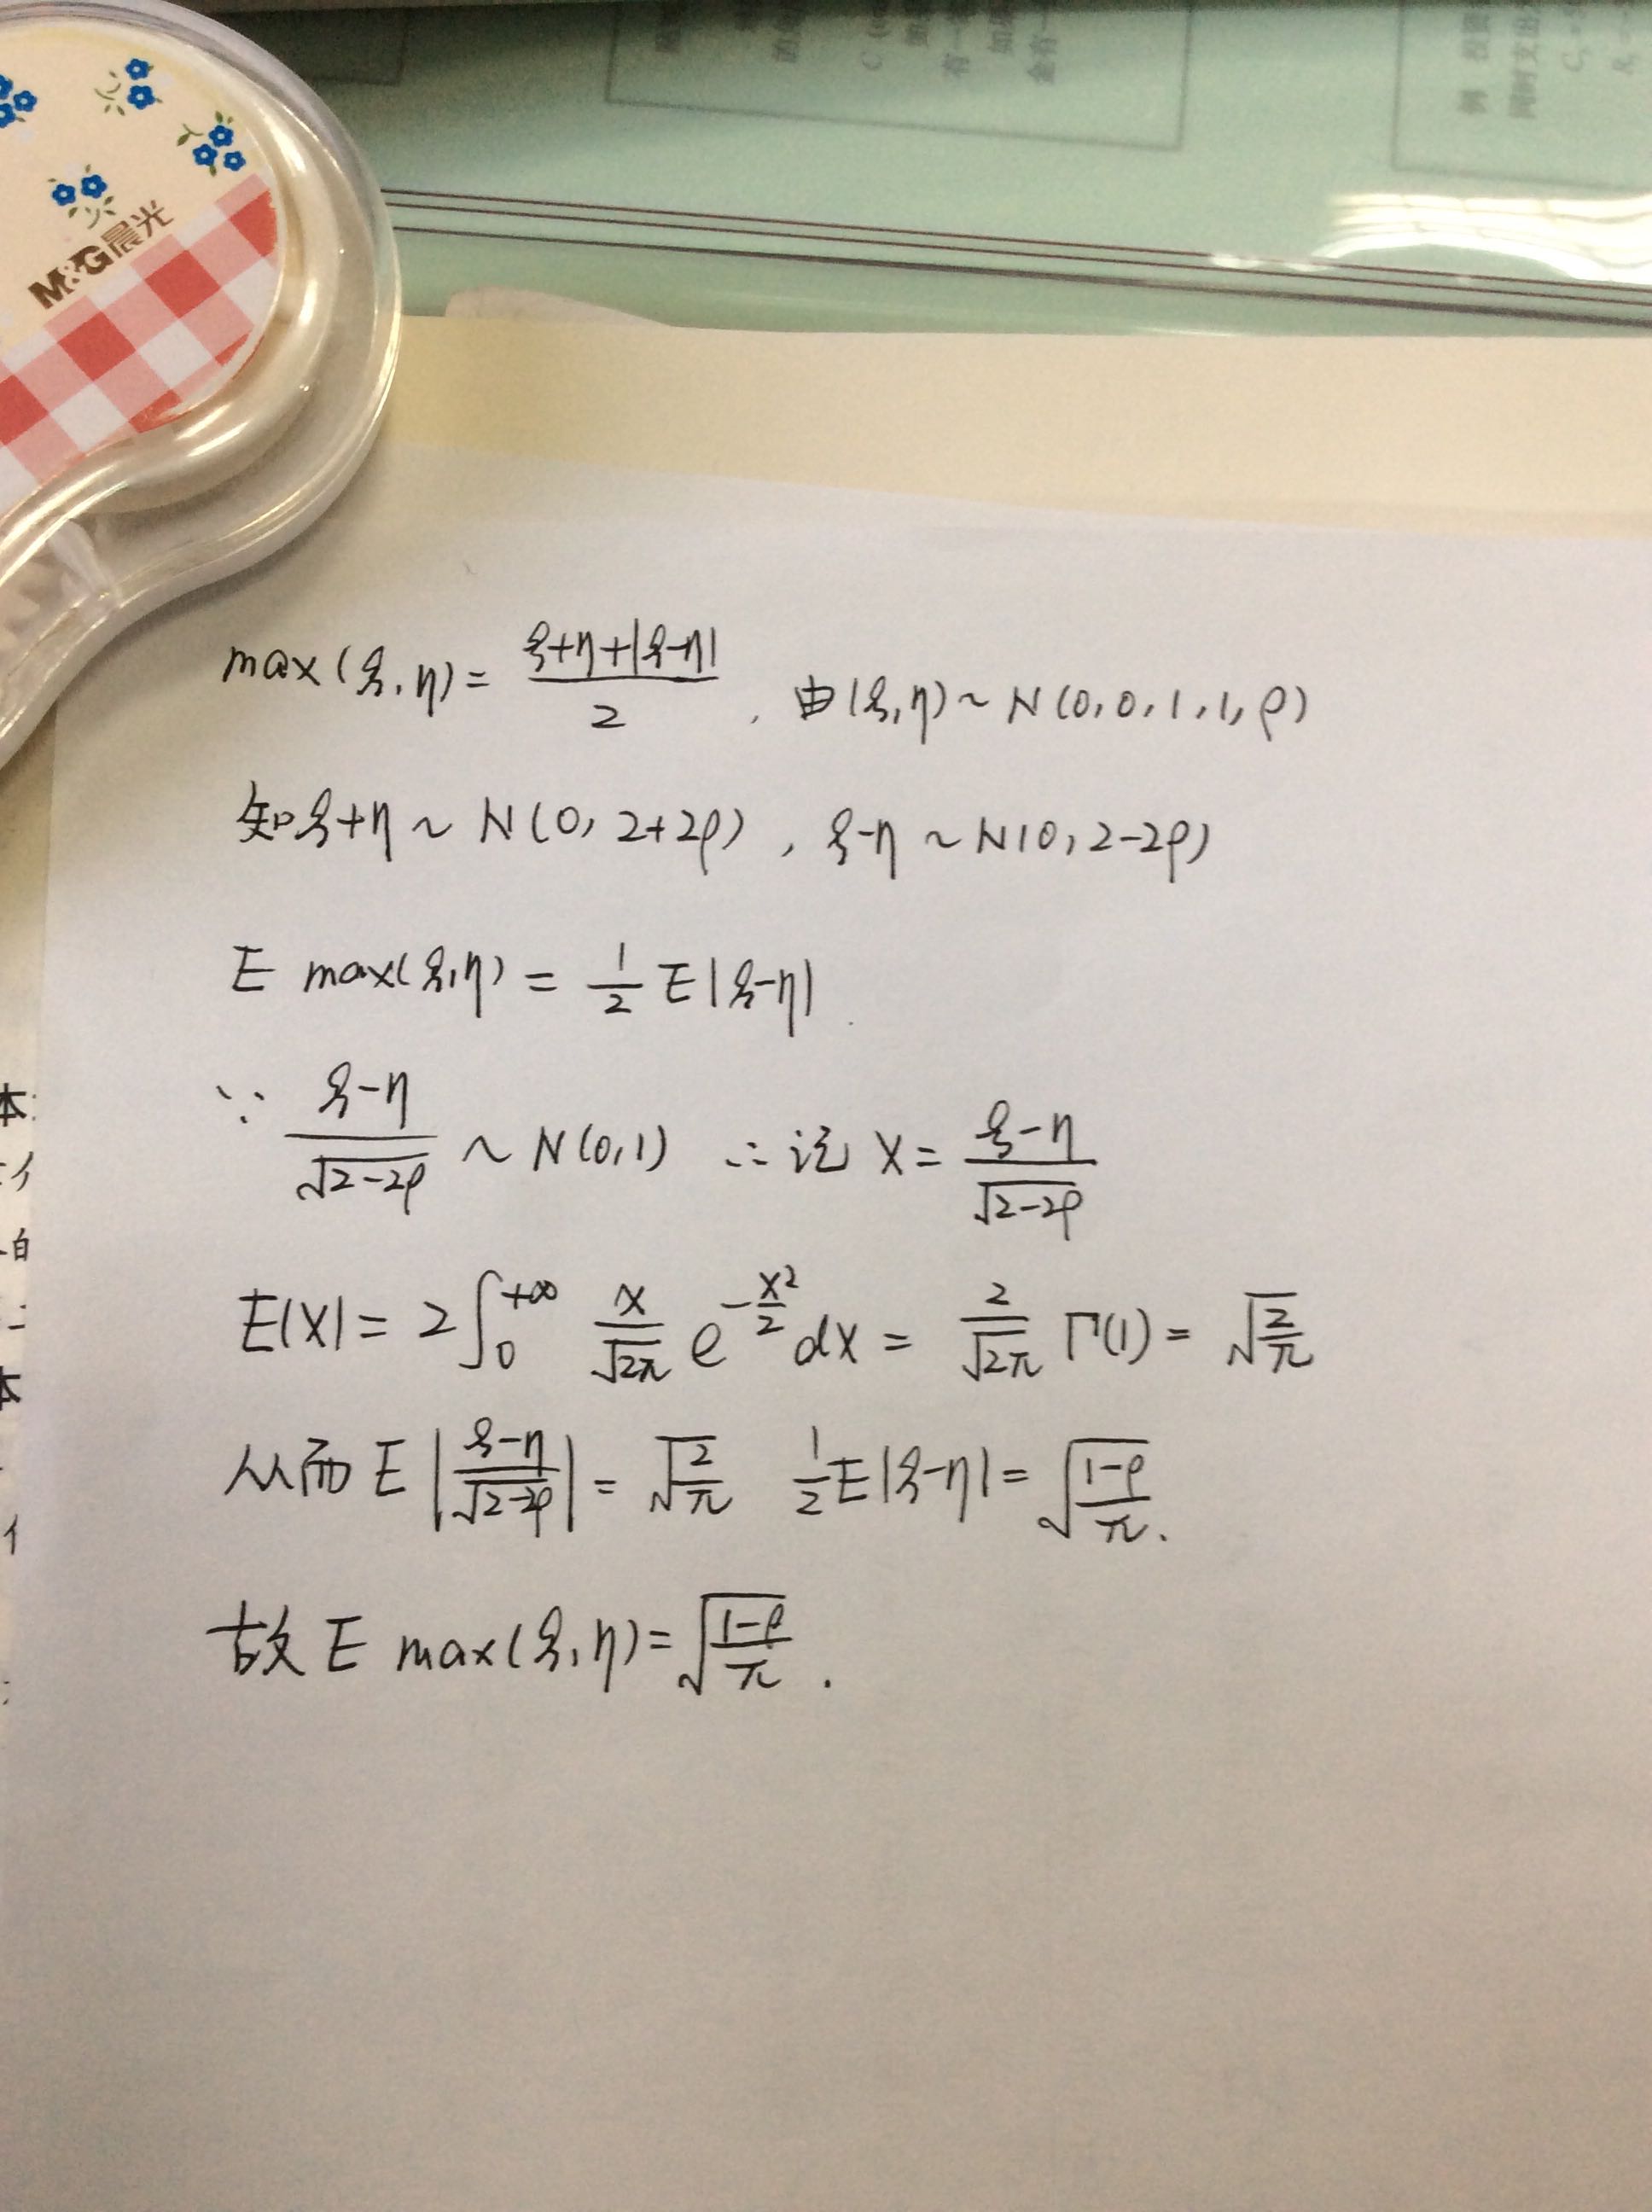 M&G晨光
max(ξ,η)= (ξ+η+|ξ-η|)/2 , 由(ξ,η)~N(0,0,1,1,ρ)
知ξ+η~N(0,2+2ρ), ξ-η~N(0,2-2ρ)
E max(ξ,η) = 1/2 E|ξ-η|
∵ (ξ-η)/√(2-2ρ) ~ N(0,1) ∴记 X= (ξ-η)/√(2-2ρ)
E|X|= 2∫₀^{+∞} x/√(2π) e^{-x²/2} dx = 2/√(2π) Γ(1) = √(2/π)
从而 E|(ξ-η)/√(2-2ρ)| = √(2/π) 1/2 E|ξ-η| = √((1-ρ)/π).
故 E max(ξ,η)=√((1-ρ)/π).
本
的
本